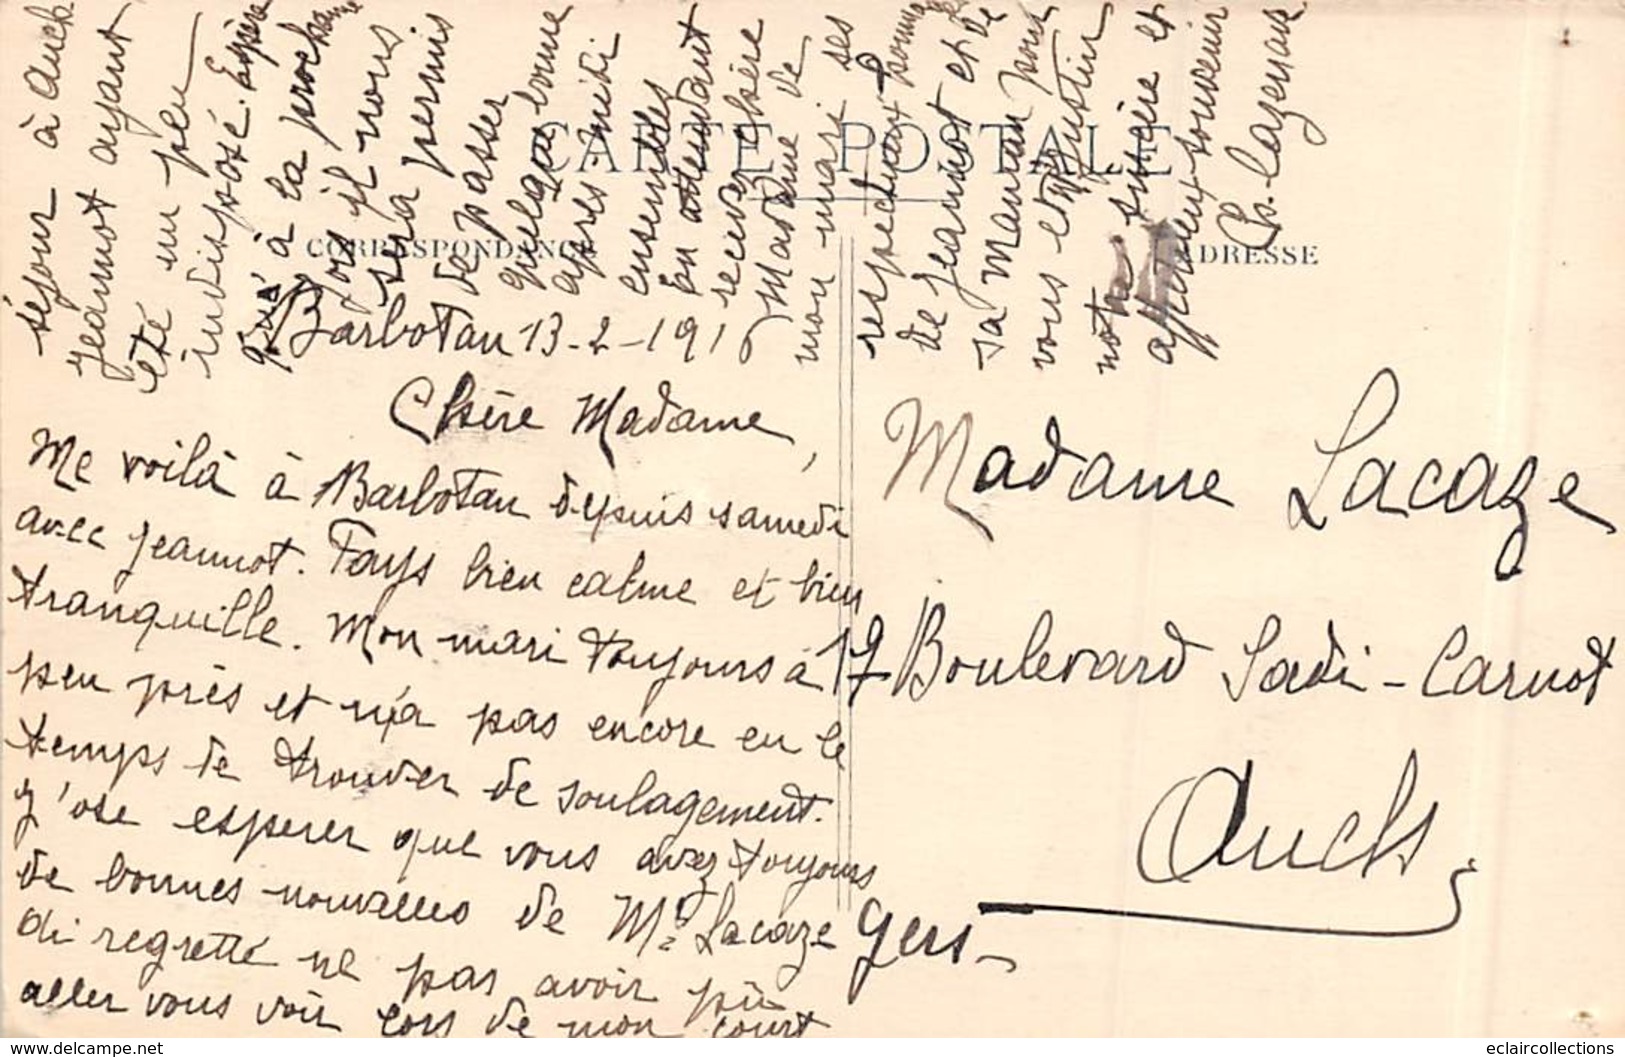 CARTE POSTALE
CORRESPONDANCE
ADRESSE
Barbotan 13-2-1916
Chère Madame,
Me voilà à Barbotan depuis samedi
avec Jeannot. Pays bien calme et bien
tranquille. Mon mari toujours à
peu près et n'a pas encore eu le
temps de trouver de soulagement.
J'ose esperer que vous avez toujours
de bonnes nouvelles de Mr Lacaze
Ai regretté ne pas avoir pû
aller vous voir lors de mon court
séjour à Auch
Jeannot ayant
été un peu
indisposé. Espère
qu'à la prochaine
fois il nous
sera permis
de passer
quelque bonne
après midi
ensembles
En attendant
recevez chère
Madame de
mon mari ses
respectueux
de Jeannot et de
sa Maman pour
vous et Justin
notre sincère et
affectueux souvenir
Ch. Cazenave
Madame Lacaze
17 Boulevard Sadi-Carnot
Auch
Gers
eclaircollections